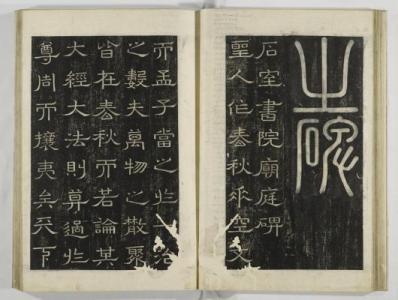 之碑
石室書院廟庭碑
聖人作春秋非空文
而孟子當之於一治
之數夫萬物之散聚
皆在春秋而若論其
大經大法則莫過於
尊周而攘夷矣天下